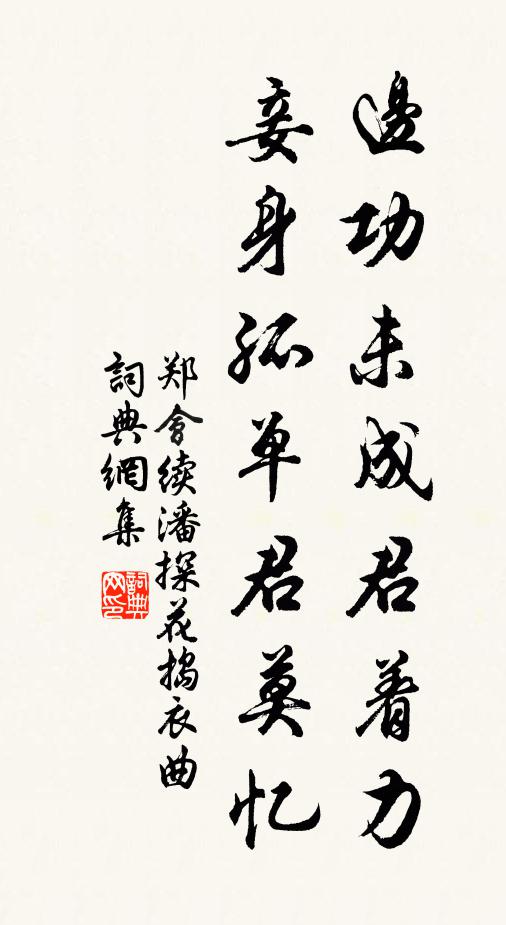 邊功未成君着力
妾身孤单君莫忆
郑會续潘探花搗衣曲
詞典網集
詞典网印